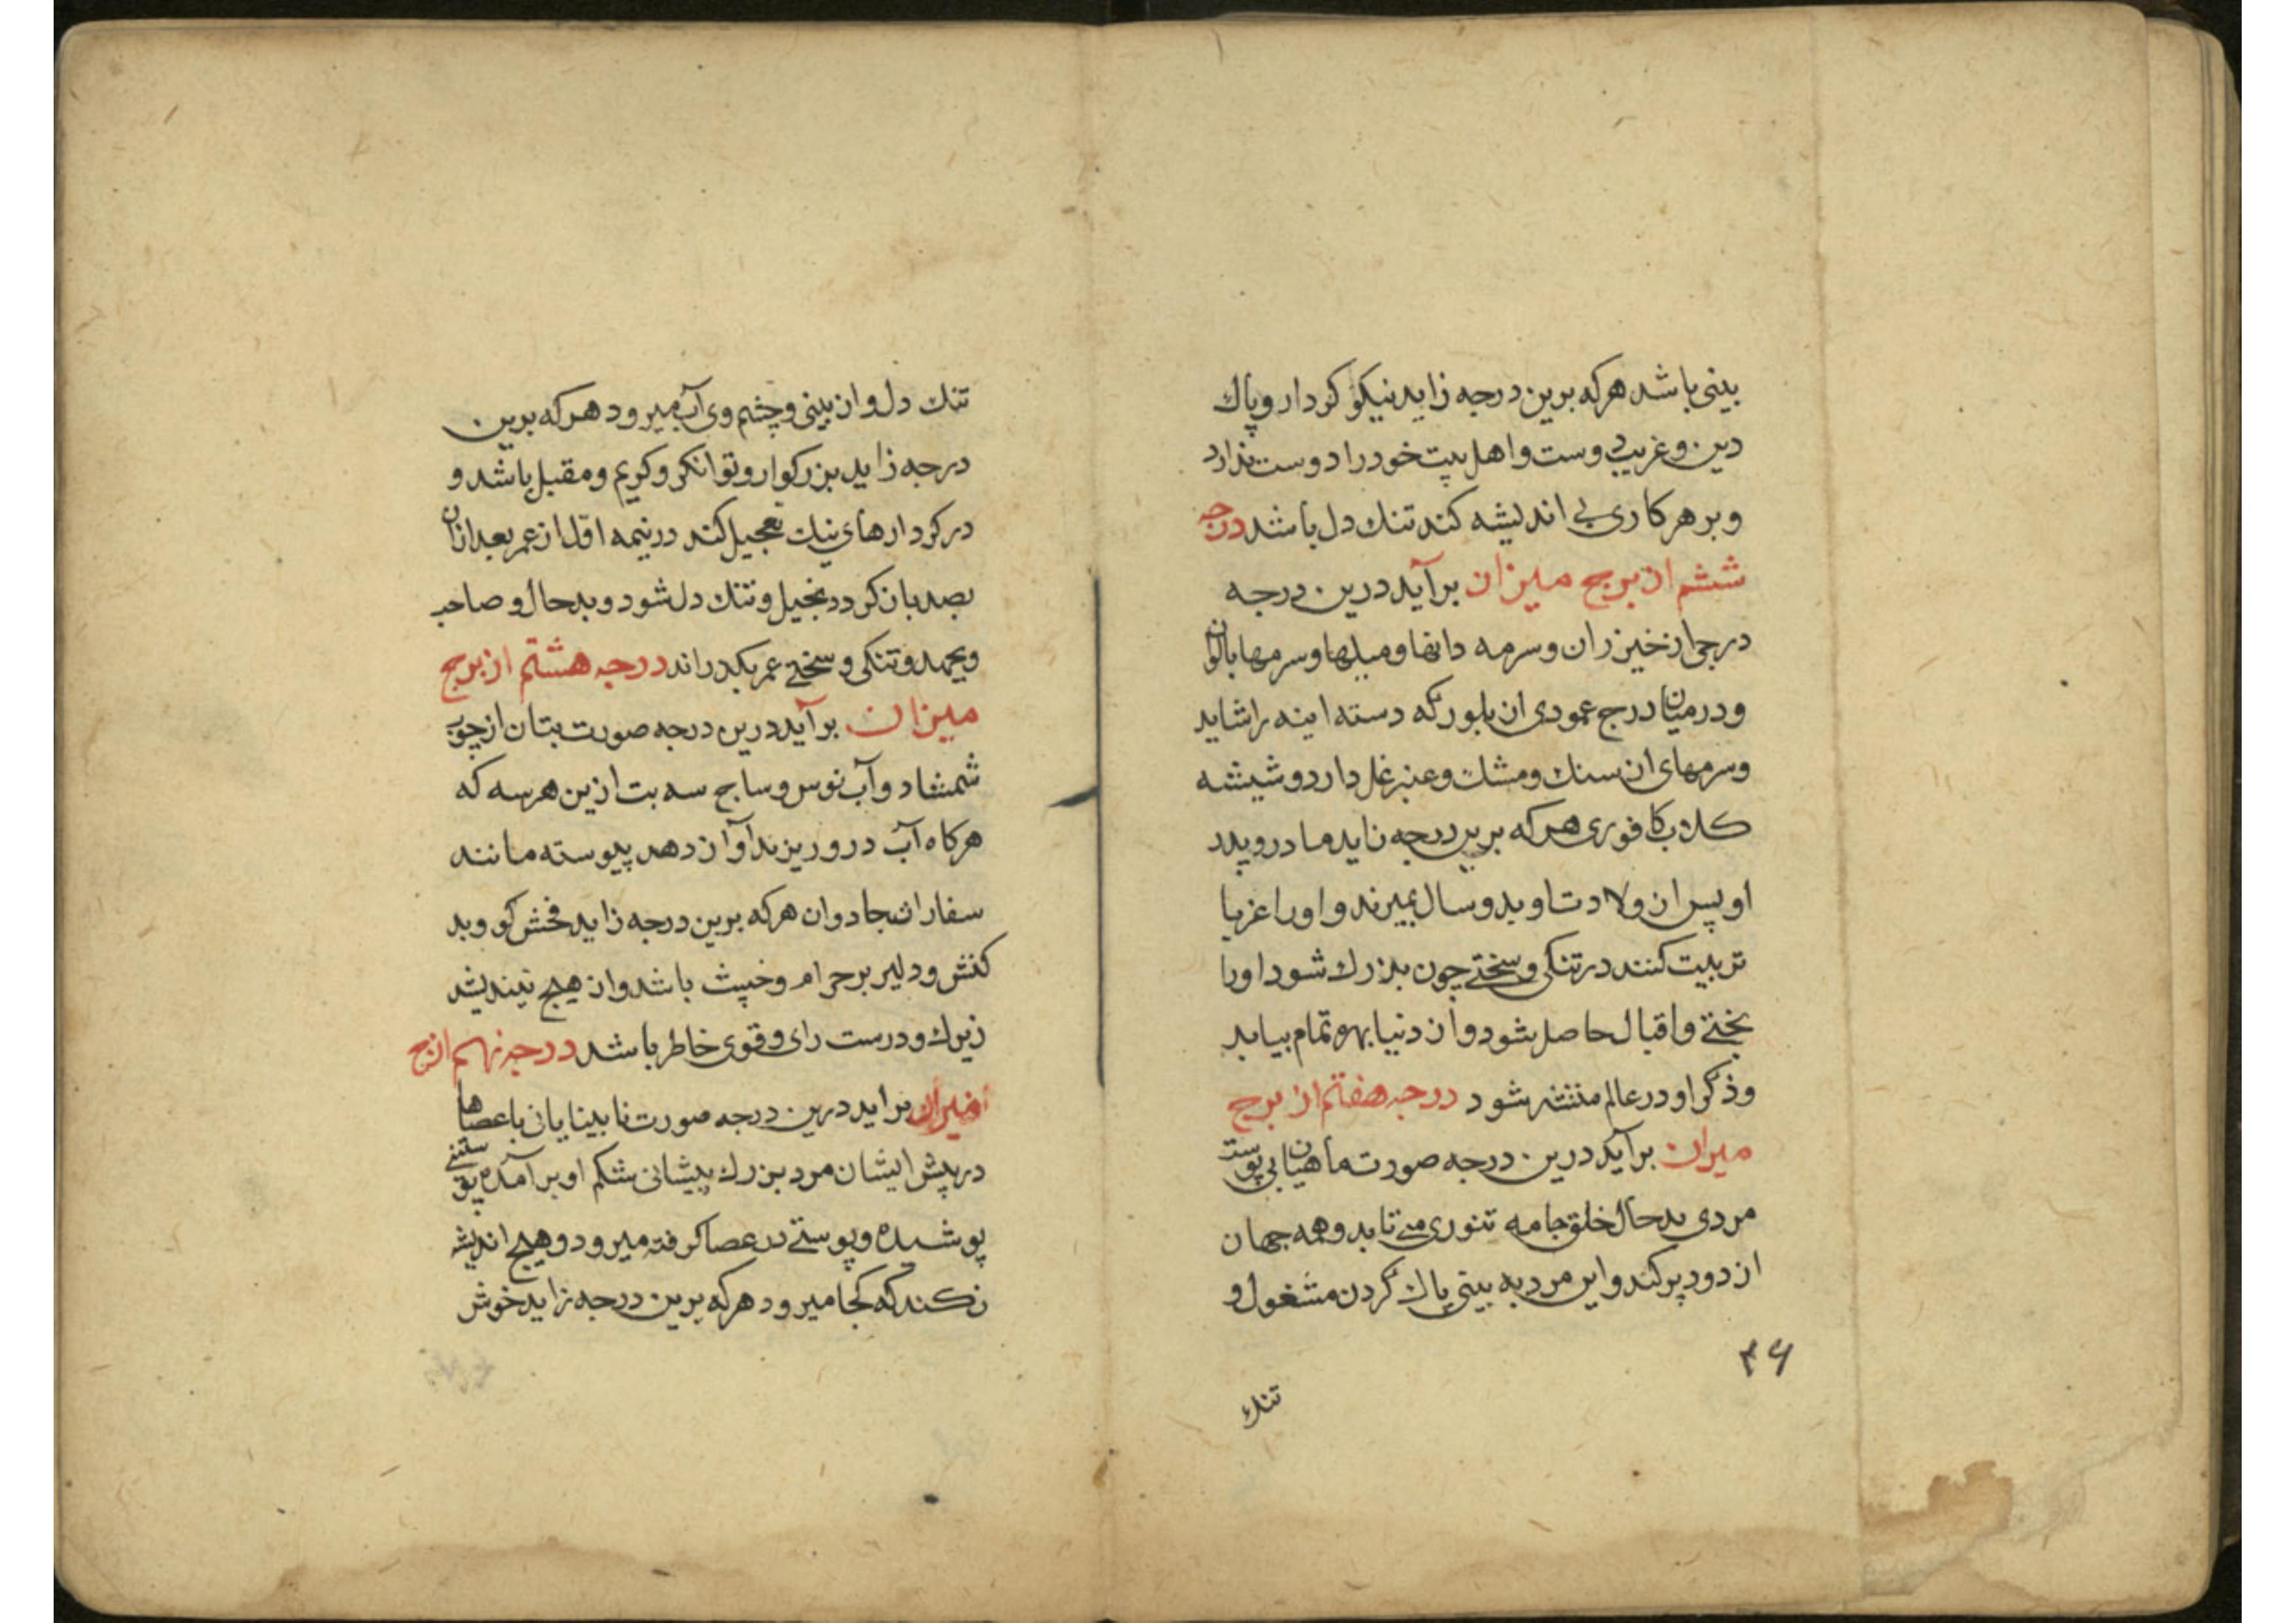 بینی باشد هرکه برین درجه زاید نیکو کردار و پاك
دین و غریب دوست و اهل بیت خود را دوست ندارد
و بر هر کاری بی اندیشه کند تنك دل باشد درجه
ششم از برج میزان برآید درین درجه
درجی از خیزران و سرمه دانها و میلها و سرمها بالوان
و در میان درج عمودی از بلور که دسته اینه را شاید
و سرمهای از سنك و مشك و عنبر غل دارد و شیشه
کلاب کافوری هرکه برین درجه زاید مادر و پدر
او پس از ولادت او بدو سال بمیرند و او را غربا
تربیت کنند در تنکی و سختی چون بزرك شود او را
بختی و اقبال حاصل شود و از دنیا بهره تمام بیابد
و ذکر او در عالم منتشر شود درجه هفتم از برج
میزان برآید درین درجه صورت ماهیان بی پوست
مردی بدحال خلق جامه تنوری می تابد و همه جهان
از دود پر کند و این مرد به بینی پاك کردن مشغول و
۴۶
تنك
تنك دل و از بینی و چشم وی آب میرود هرکه برین
درجه زاید بزرکوار و توانکر و کریم و مقبل باشد و
در کردارهای نیك تعجیل کند در نیمه اول از عمر بعد ازان
بصد بان کردد بخیل و تنك دل شود و بدحال و صاحب
و تنکی و سختی عمر بکذراند درجه هشتم از برج
میزان برآید درین درجه صورت بتان از چوب
شمشاد و آب نوس و ساج سه بت ازین هر سه که
هرکاه آب در و ریزند آواز دهد پیوسته مانند
سفارات جادوان هرکه برین درجه زاید فحش کو و بد
کنش و دلیر بر حرام و خبیث باشد و از هیچ نیندیشد
زیرك و درست رای و قوی خاطر باشد درجه نهم از برج
میزان براید درین درجه صورت نابینایان با عصاها
در پیش ایشان مرد بزرك پیشانی شکم او بر آمده پوستنی
پوشیده و پوستی در عصا کرفته میرود و هیچ اندیشه
نکند که کجا میرود هرکه برین درجه زاید خوش